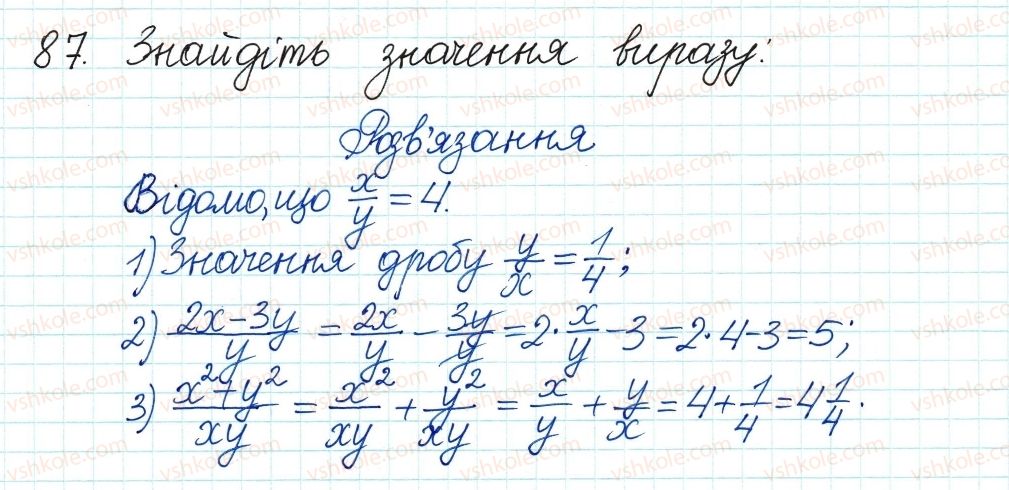 87. Знайдіть значення виразу:
Розв'язання
Відомо, що x/y = 4.
1) Значення дробу y/x = 1/4;
2) (2x-3y)/y = 2x/y - 3y/y = 2·x/y - 3 = 2·4-3 = 5;
3) (x²+y²)/xy = x²/xy + y²/xy = x/y + y/x = 4 + 1/4 = 4 1/4.